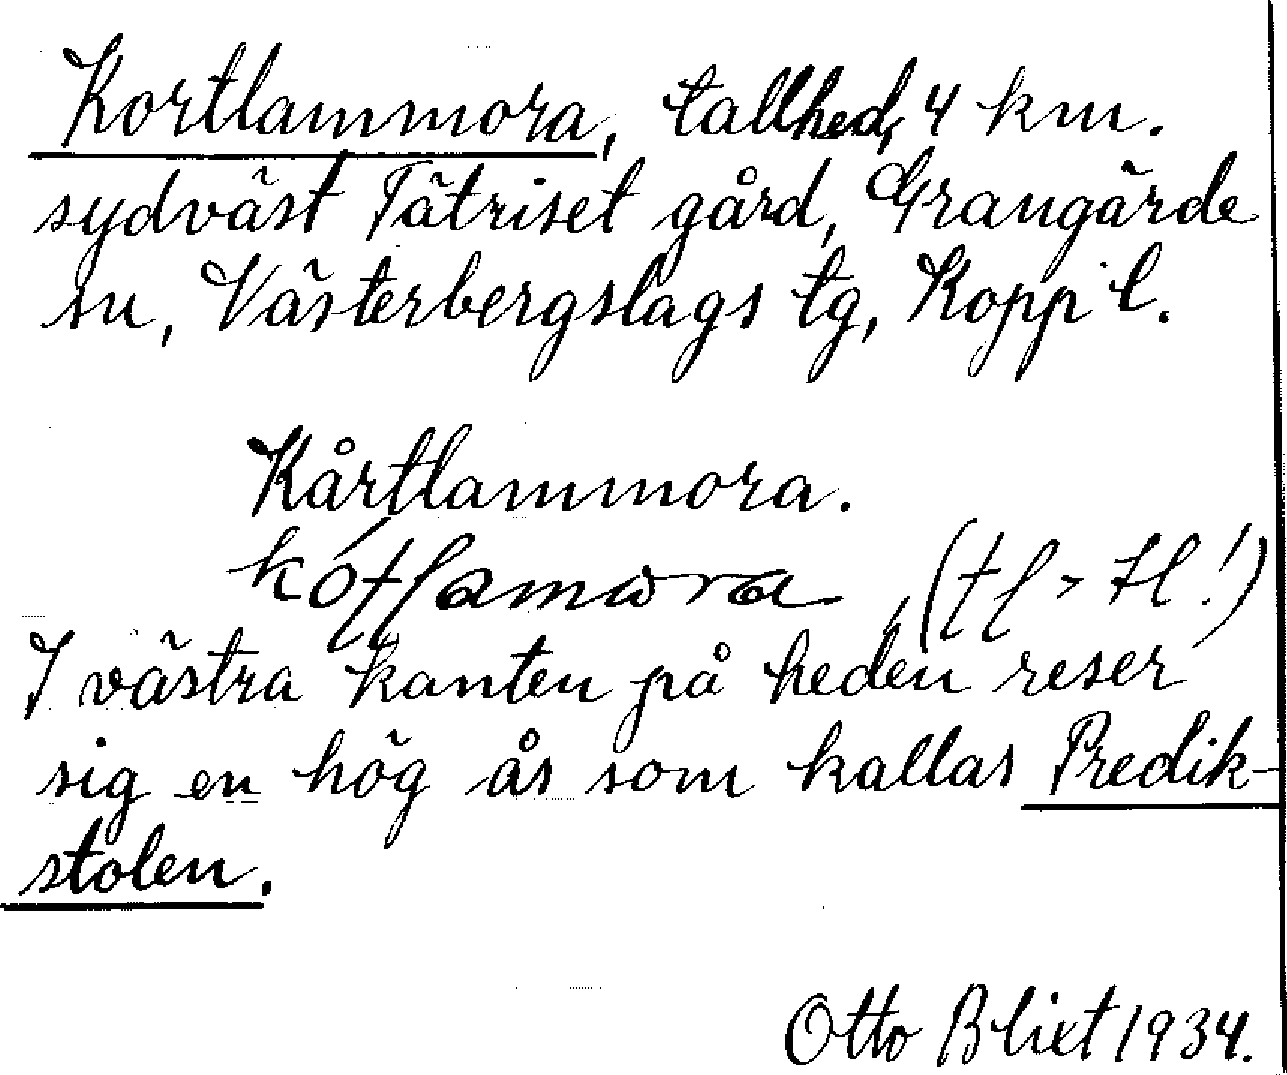 Kortlammora, tallhed, 4 km.
sydväst Tätriset gård, Grangärde
sn, Västerbergslags tg, Kopp l.
Kårtlammora.
I västra kanten på heden reser
sig en hög ås som kallas Predik-
stolen.
Otto Blixt 1934.